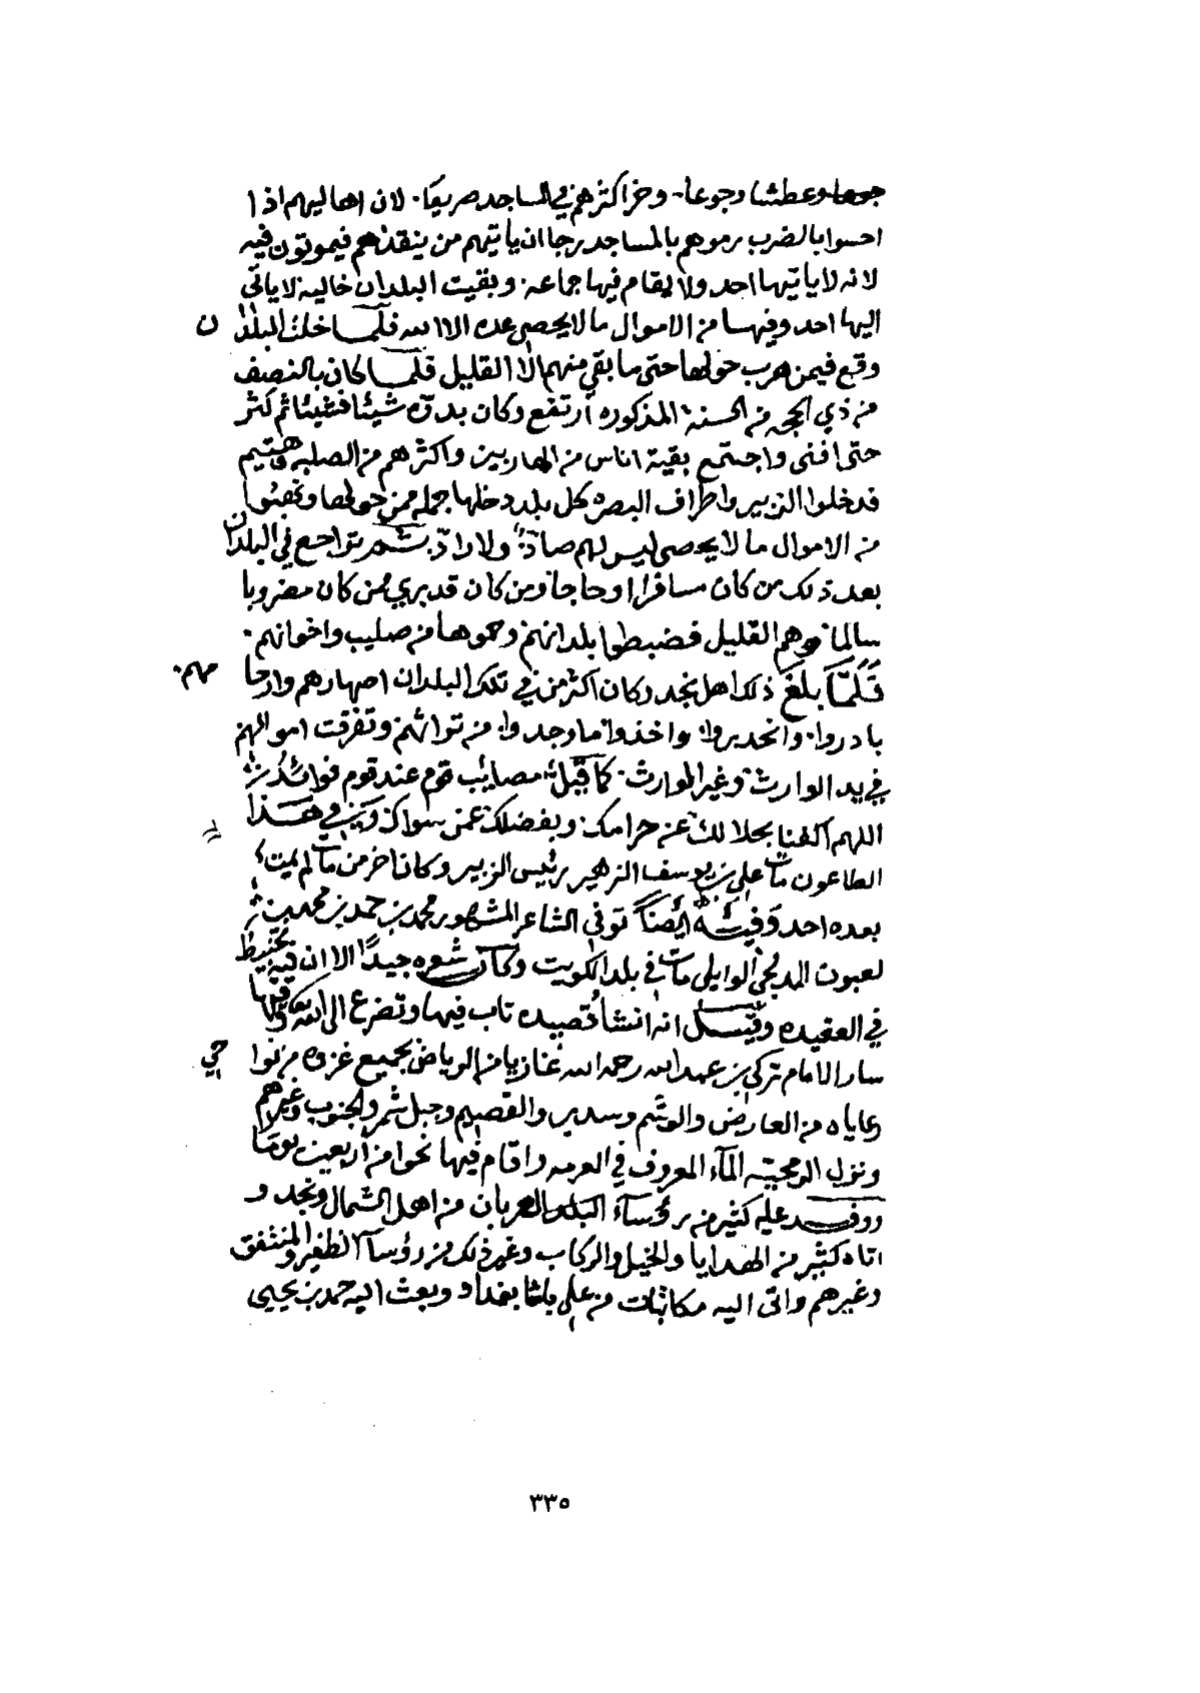 جوعا وعطشا وجوعا. وخر اكثرهم في المساجد صريعا. لان اهاليهم اذا
احسوا بالضرب رموهم بالمساجد رجا ان ياتيهم من ينقذهم فيموتون فيه
لانه لا ياتيها احد ولا يقام فيها جماعه. وبقيت البلدان خاليه لا ياتي
اليها احد وفيها من الاموال ما لا يحصي عده الا الله فلما خلت البلدان
وقع فيمن هرب حولها حتى ما بقي منهم الا القليل فلما كان بالنصف
من ذي الحجه من السنة المذكوره ارتفع وكان بدؤه شيئا فشيئا ثم كثر
حتى افنى واجتمع بقية اناس من الهاربين واكثرهم من الصلبه وهتيم
فدخلوا الزبير واطراف البصره كل بلد دخلها جمله ممن حولها ونهبوا
من الاموال ما لا يحصى ليس لهم صادّ ولا رادّ. ثم تراجع في البلدان
بعد ذلك من كان مسافرا او حاجا ومن كان قد بري ممن كان مضروبا
سالما وهم القليل فضبطوا بلدانهم وحموها من صليب واخوانهم.
فَلَمَّا بلغ ذلك اهل نجد وكان اكثر من في تلك البلدان اصهارهم وارحامهم.
بادروا. وانحدروا. واخذوا ما وجدوا. من تراثهم وتفرقت اموالهم
في يد الوارث وغير الوارث. كما قيل مصائب قوم عند قوم فوائد
اللهم اكفنا بحلالك عن حرامك. وبفضلك عمن سواك وفي هذا
الطاعون مات علي بن يوسف الزهير رئيس الزبير وكان اخر من مات لم يمت
بعده احد وَفيهَا أيضاً توفي الشاعر المشهور محمد بن حمد بن محمد بن
لعبون المدلجي الوايلي مات في بلد الكويت وكان شعره جيدًا الا ان فيه تخبيط
في العقيده وقيل انه انشأ قصيده تاب فيها وتضرع الى الله وفيها
سار الامام تركي بن عبد الله رحمه الله غازيا من الرياض بجميع غزوه من نواحي
رعاياه من العارض والوشم وسدير والقصيم وجبل شمر والجنوب وغيرهم
ونزل الرمحيه المآء المعروف في العرمه واقام فيها نحوا من أربعين يومًا
ووفد عليه كثير من رؤسآء البلد والعربان من اهل الشمال ونجد و
اتاه كثير من الهدايا والخيل والركاب وغير ذلك من رؤسآ الظفير والمنتفق
وغيرهم واتى اليه مكاتبات من علي باشا بغداد وبعث اليه حمد بن يحيى
٣٣٥